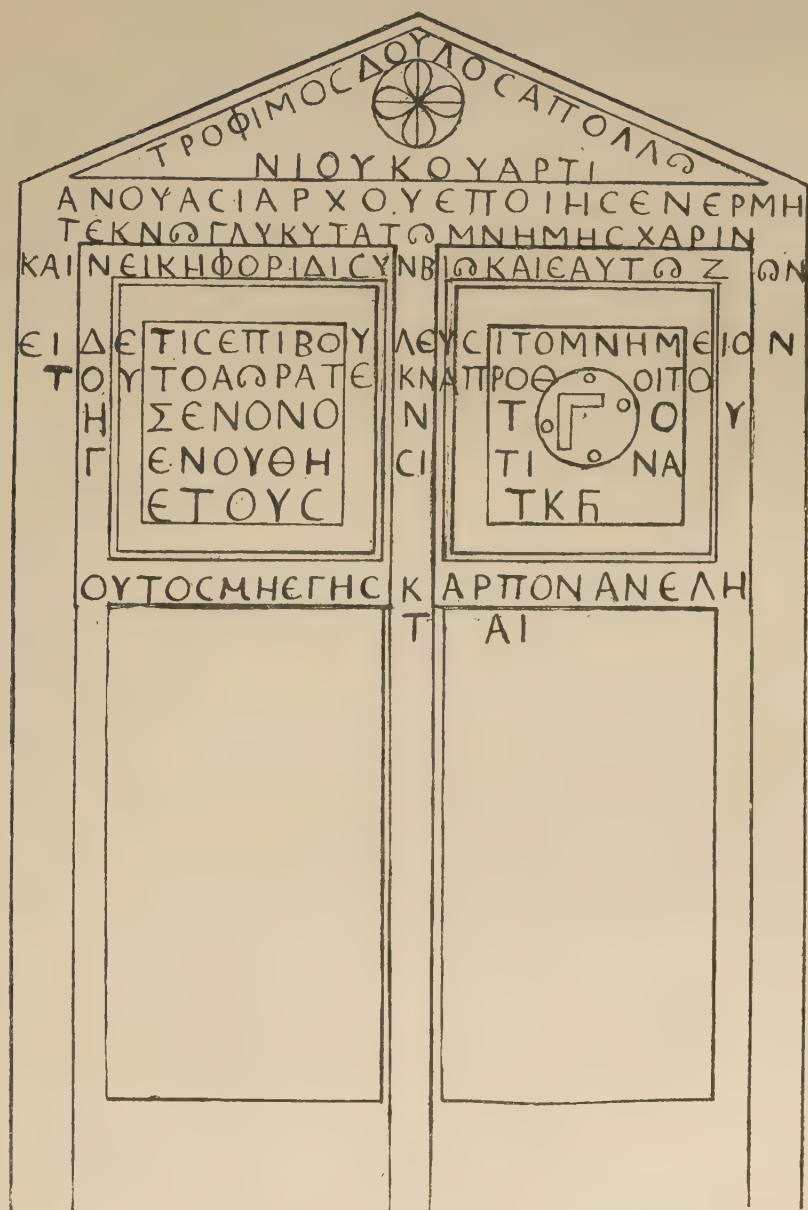 ΤΡΟΦΙΜΟC ΔΟΥΛΟC ΑΠΟΛΛΩ
ΝΙΟΥΚΟΥΑΡΤΙ
ΑΝΟΥΑCΙΑΡΧΟΥΕΠΟΙΗCΕΝΕΡΜΗ
ΤΕΚΝΩΓΛΥΚΥΤΑΤΩΜΝΗΜΗCΧΑΡΙΝ
ΚΑΙΝΕΙΚΗΦΟΡΙΔΙCΥΝΒΙΩΚΑΙΕΑΥΤΩΖΩΝ
ΕΙΔΕΤΙCΕΠΙΒΟΥΛΕΥCΙΤΟΜΝΗΜΕΙΟΝ
ΤΟΥΤΟΑΩΡΑΤΕΚΝΑΠΡΟΘΟΙΤΟ
ΗΣΕΝΟΝΟΝΤΓΟΥ
ΓΕΝΟΥΘΗCΙΤΙΝΑ
ΕΤΟΥC ΤΚϚ
ΟΥΤΟCΜΗΕΓΗCΚΑΡΠΟΝΑΝΕΛΗ
ΤΑΙ